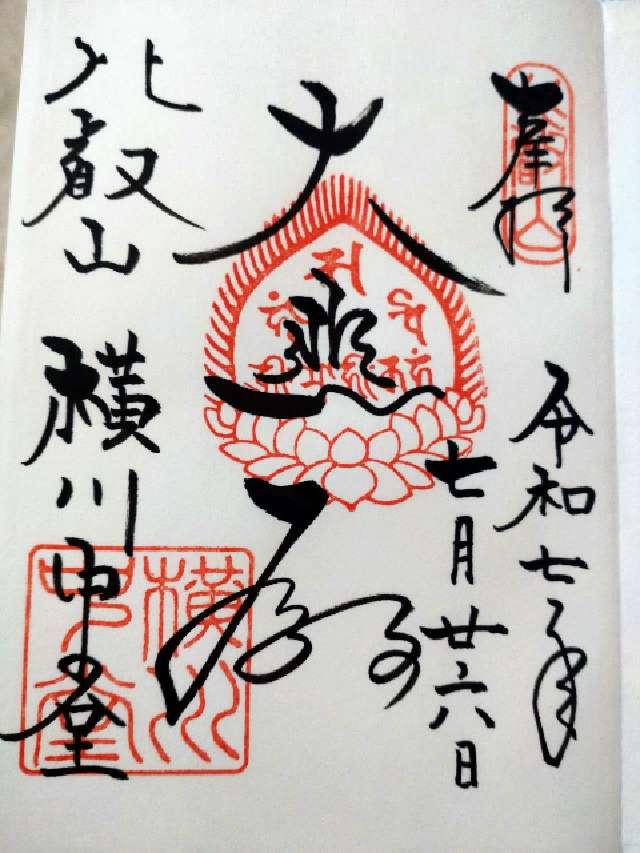 奉拝
令和七年
七月廿六日
大悲殿
比叡山 横川中堂
比叡山
横川
中堂